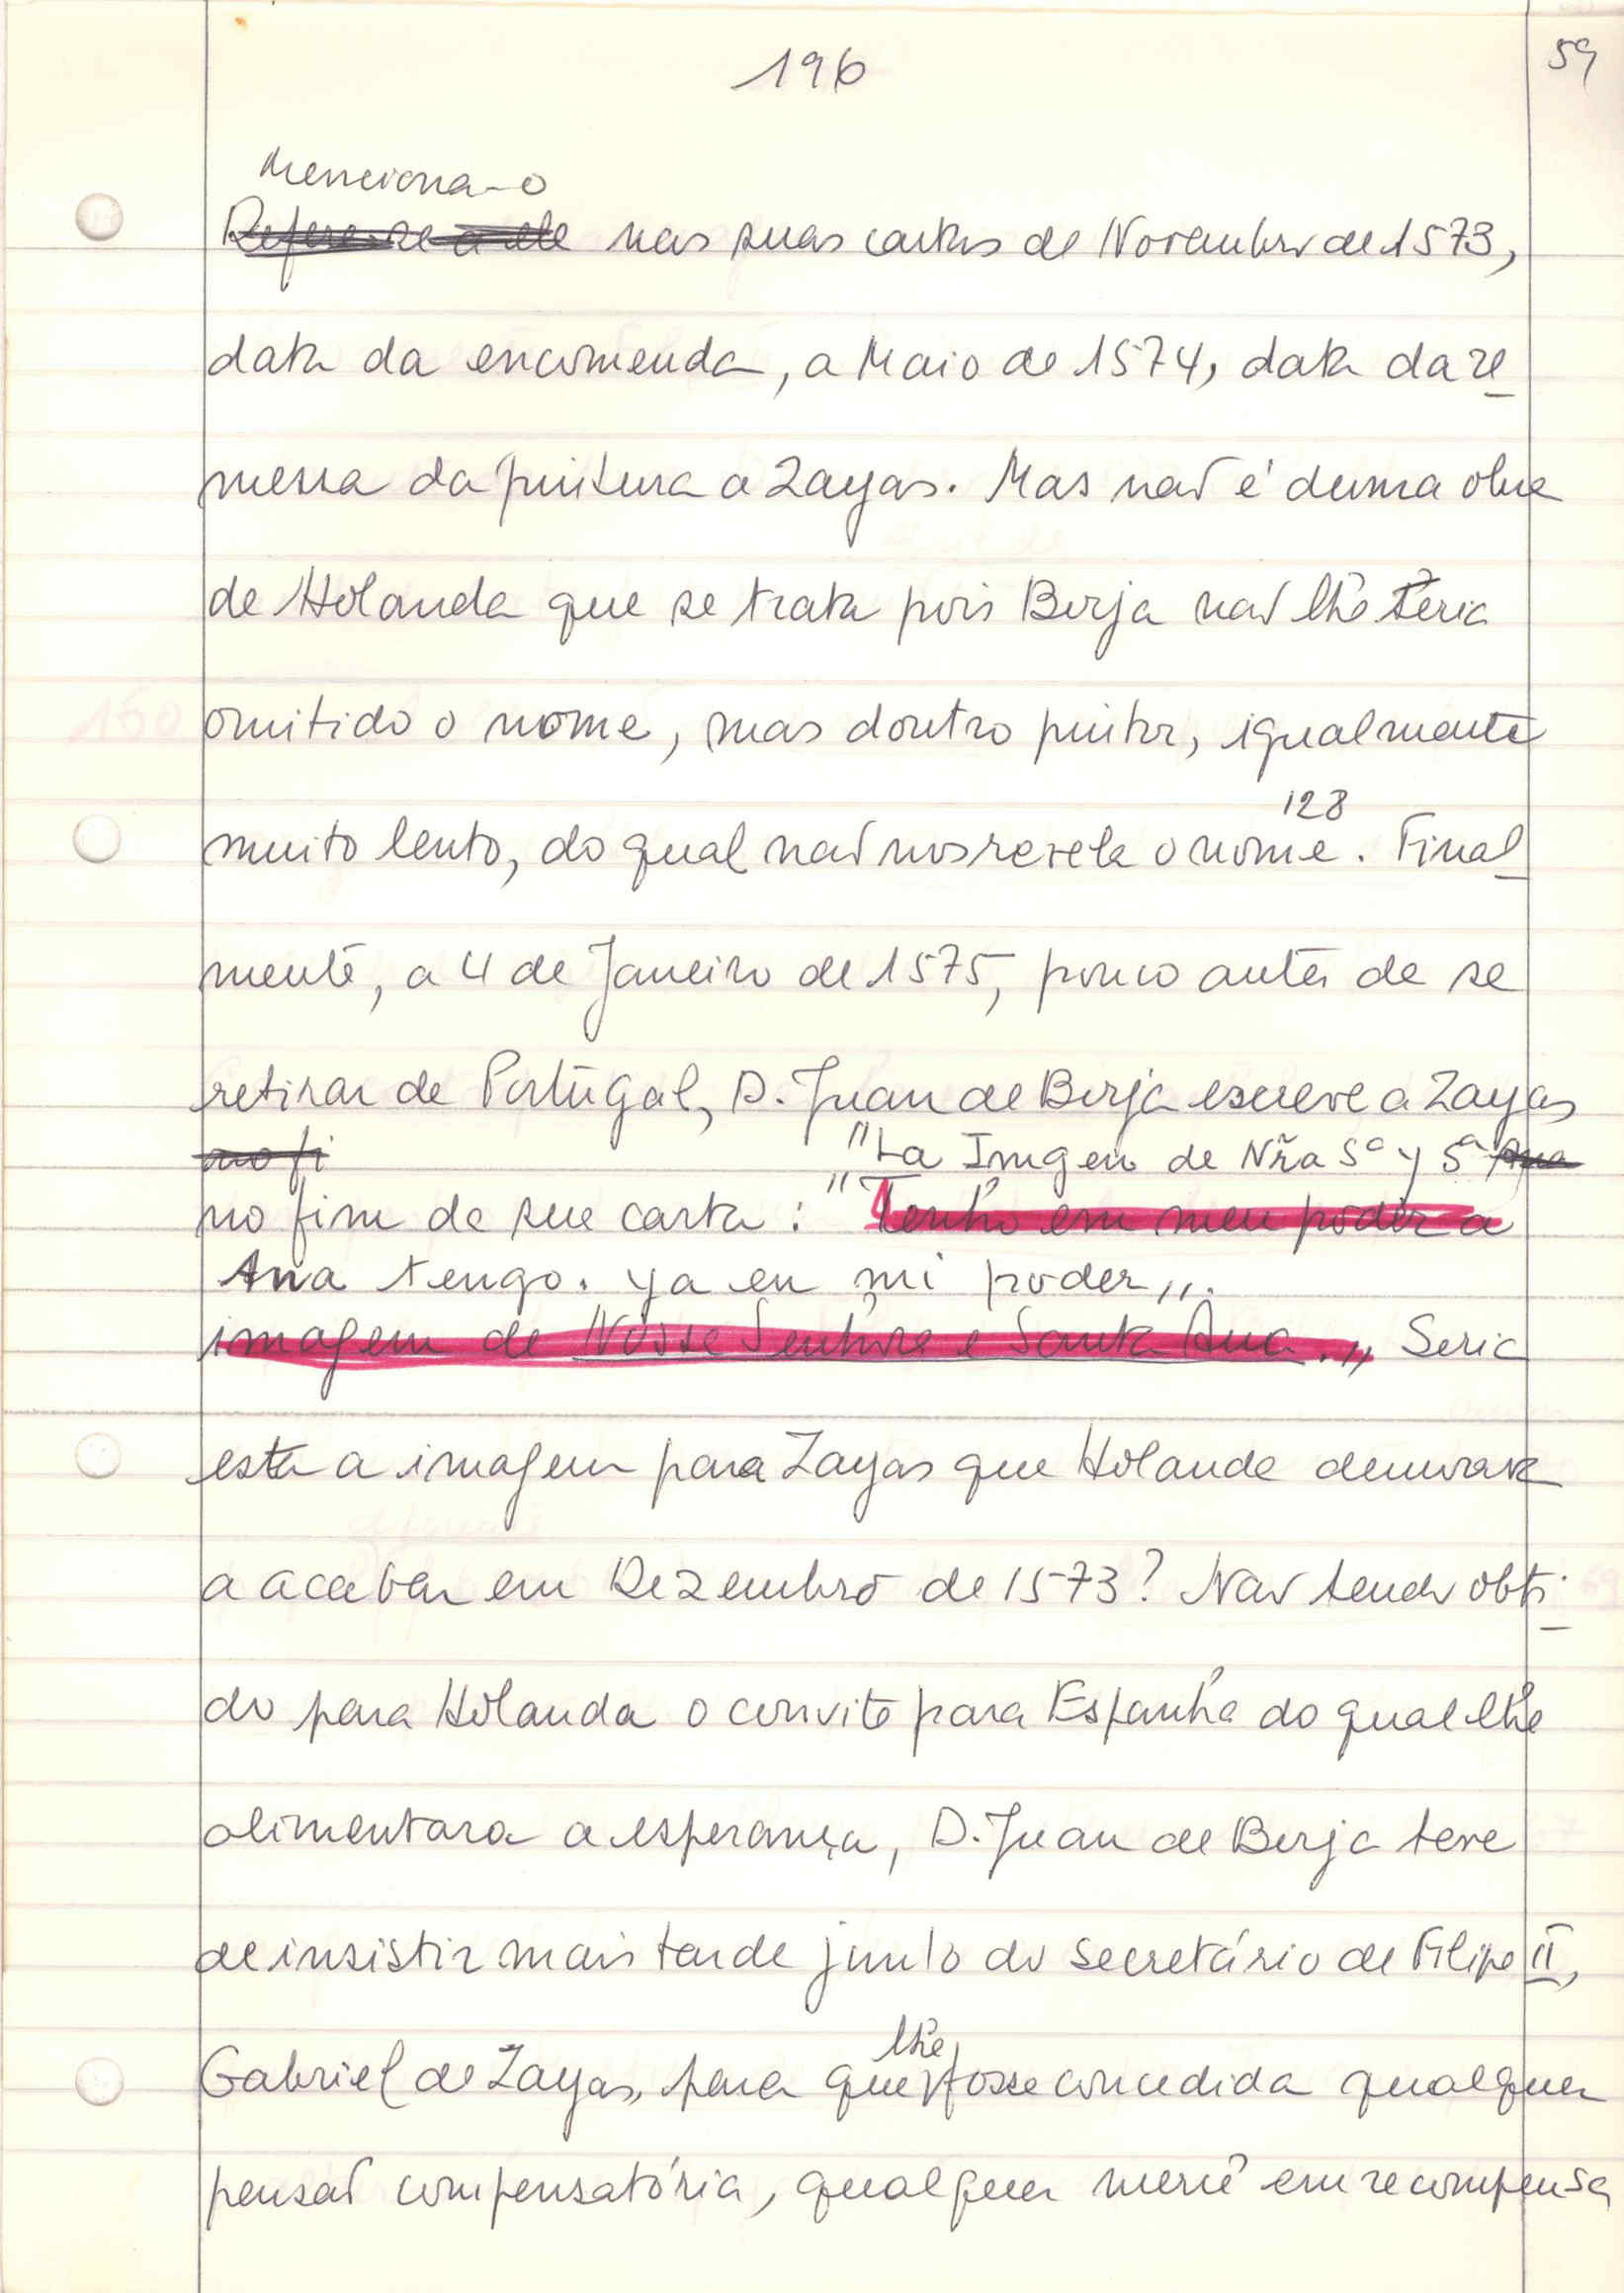 196
59
Menciona-o
Refere-se a ele nas suas cartas de Novembro de 1573,
data da encomenda, a Maio de 1574, data da re
messa da pintura a Zayas. Mas não é duma obra
de Holanda que se trata pois Borja não lhe teria
omitido o nome, mas doutro pintor, igualmente
128
muito lento, do qual não nos revela o nome. Final
mente, a 4 de Janeiro de 1575, pouco antes de se
retirar de Portugal, D. Juan de Borja escreve a Zayas
no fi "La Imgen de Nr̃a Sª y Sª Ana
no fim de sua carta: "Tenho em meu poder a
Ana tengo. ya en mi poder,,.
imagem de Nossa Senhora e Santa Ana.,, Seria
esta a imagem para Zayas que Holanda demorava
a acabar em Dezembro de 1573? Não tendo obti
do para Holanda o convite para Espanha do qual lhe
alimentara a esperança, D. Juan de Borja teve
de insistir mais tarde junto do secretário de Filipe II,
lhe
Gabriel de Zayas, para que fosse concedida qualquer
pensão compensatória, qualquer mercê em recompensa